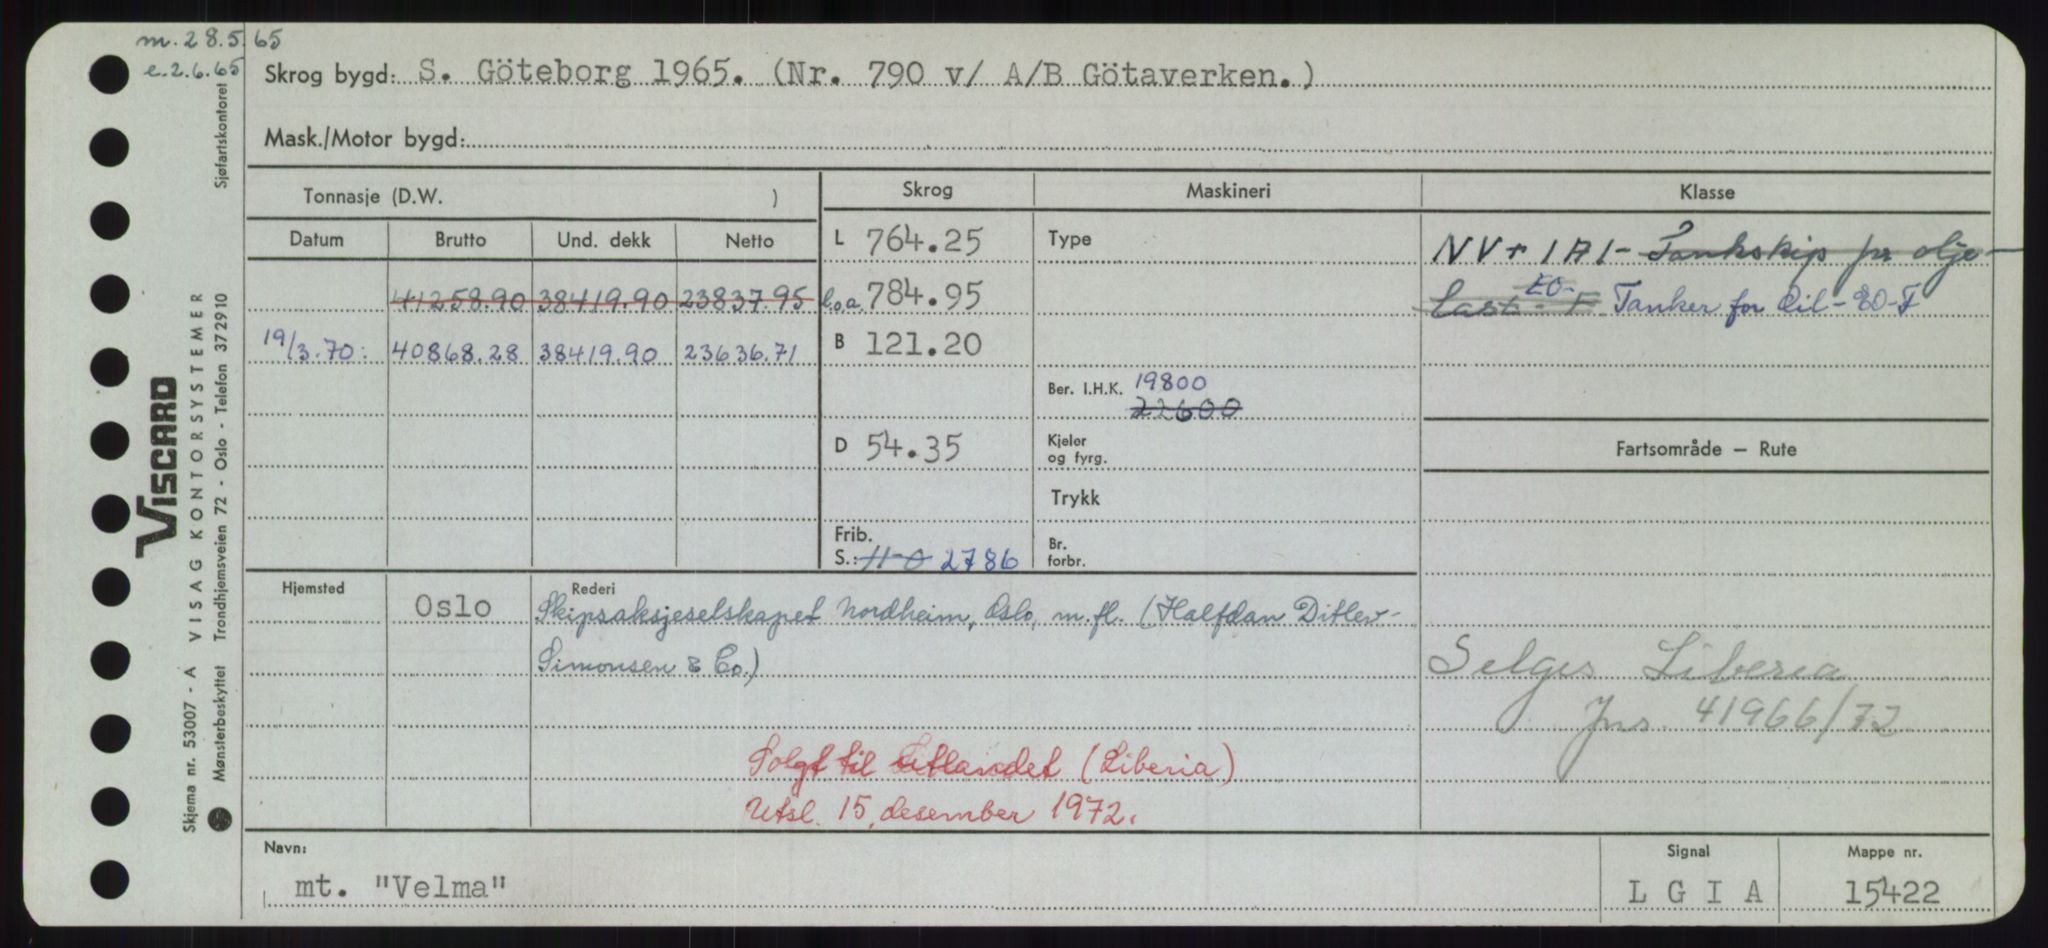 m. 28.5.65
e. 2.6.65
Skrog bygd: S. Göteborg 1965. (Nr. 790 v/ A/B Götaverken.)
Mask./Motor bygd:
Tonnasje (D.W. )
Skrog
Maskineri
Klasse
Datum
Brutto
Und. dekk
Netto
L 764.25
Type
NV + 1A1 - Tankskip for olje-
41258.90 38419.90 23837.95
l.o.a. 784.95
last - F EO- Tanker for Oil - EO-F
19/3.70: 40868.28 38419.90 23636.71
B 121.20
Ber. I.H.K. 19800
22600
D 54.35
Kjeler
og fyrg.
Fartsområde – Rute
Trykk
Frib.
S.: 11-0 2786
Br.
forbr.
Hjemsted
Oslo
Rederi
Skipsaksjeselskapet Nordheim, Oslo, m.fl. (Halfdan Ditlev-
Simonsen & Co.)
Selges Liberia
Jns. 41966/72
Solgt til Utlandet (Liberia)
Utsl. 15. desember 1972.
Navn:
mt. "Velma"
Signal
L G I A
Mappe nr.
15422
VISCARD
Skjema nr. 53007 - A VISAG KONTORSYSTEMER
Mønsterbeskyttet Trondhjemsveien 72 - Oslo - Telefon 372910
Sjøfartskontoret